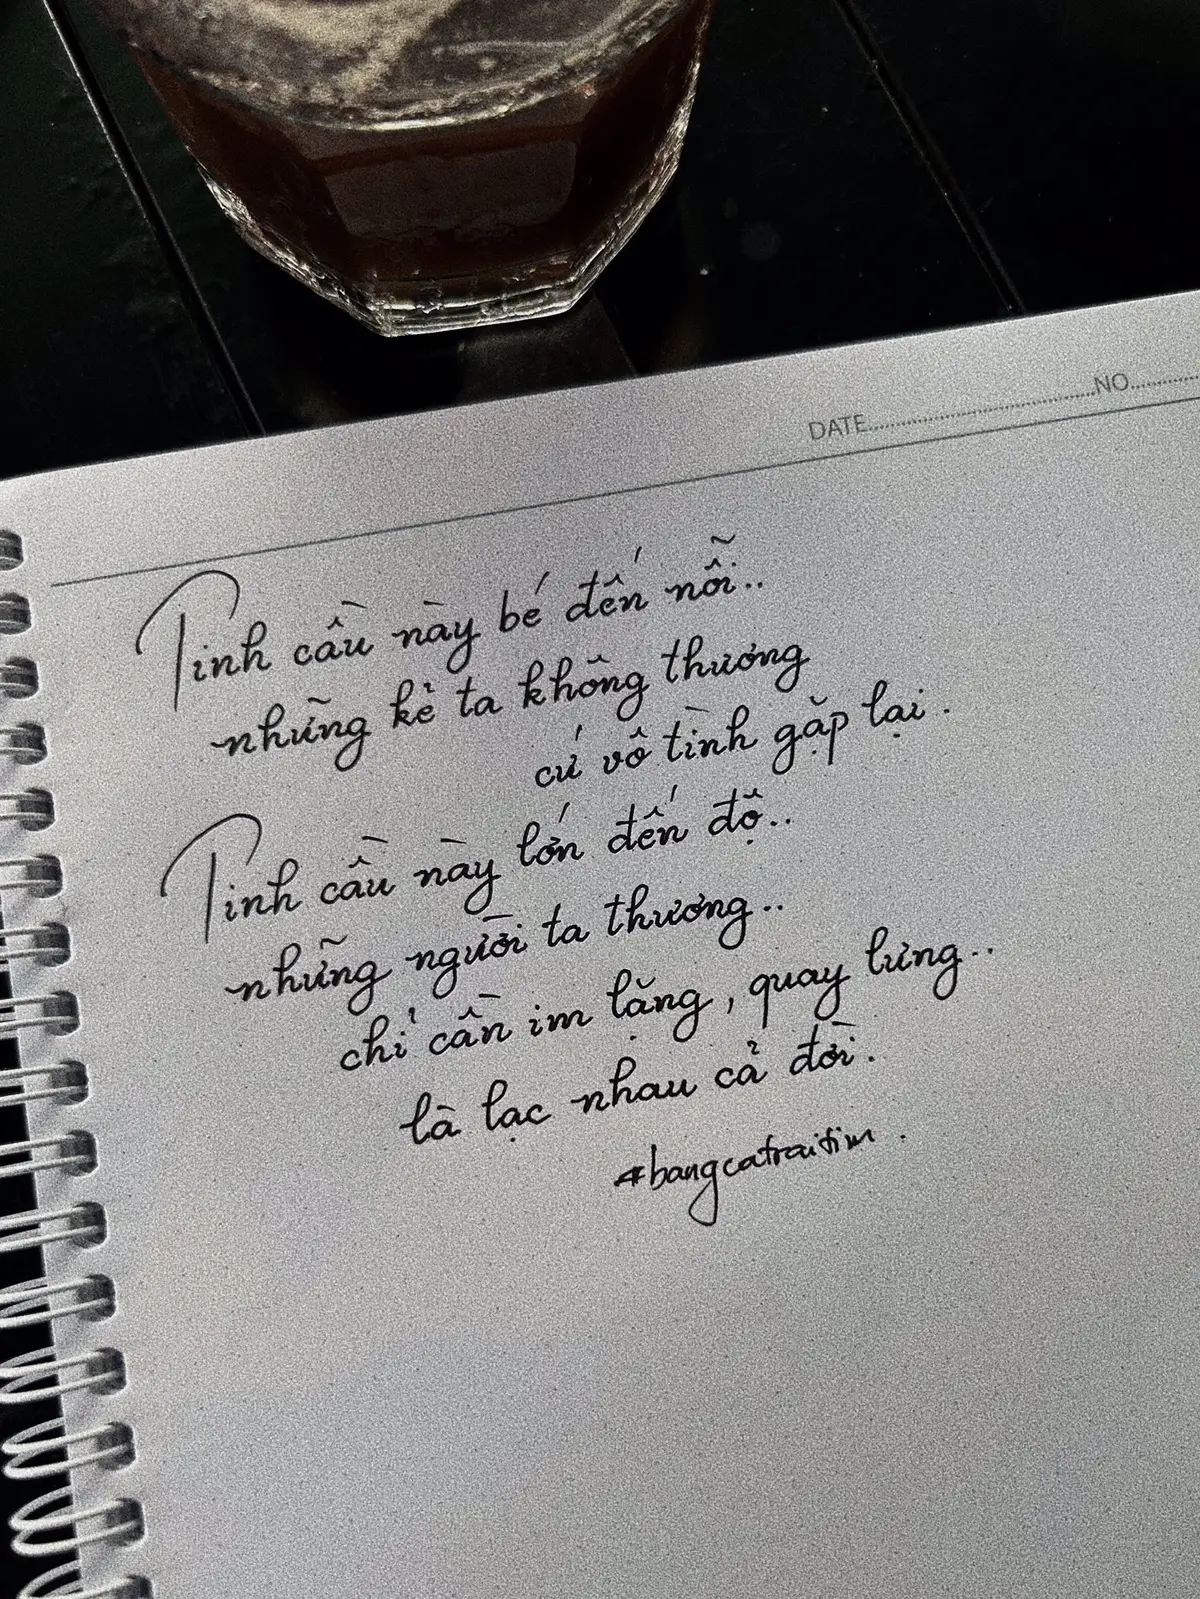 DATE NO
Tinh cầu này bé đến nỗi..
những kẻ ta không thương
cứ vô tình gặp lại.
Tinh cầu này lớn đến độ..
những người ta thương..
chỉ cần im lặng, quay lưng..
là lạc nhau cả đời.
#bangcatraitim.